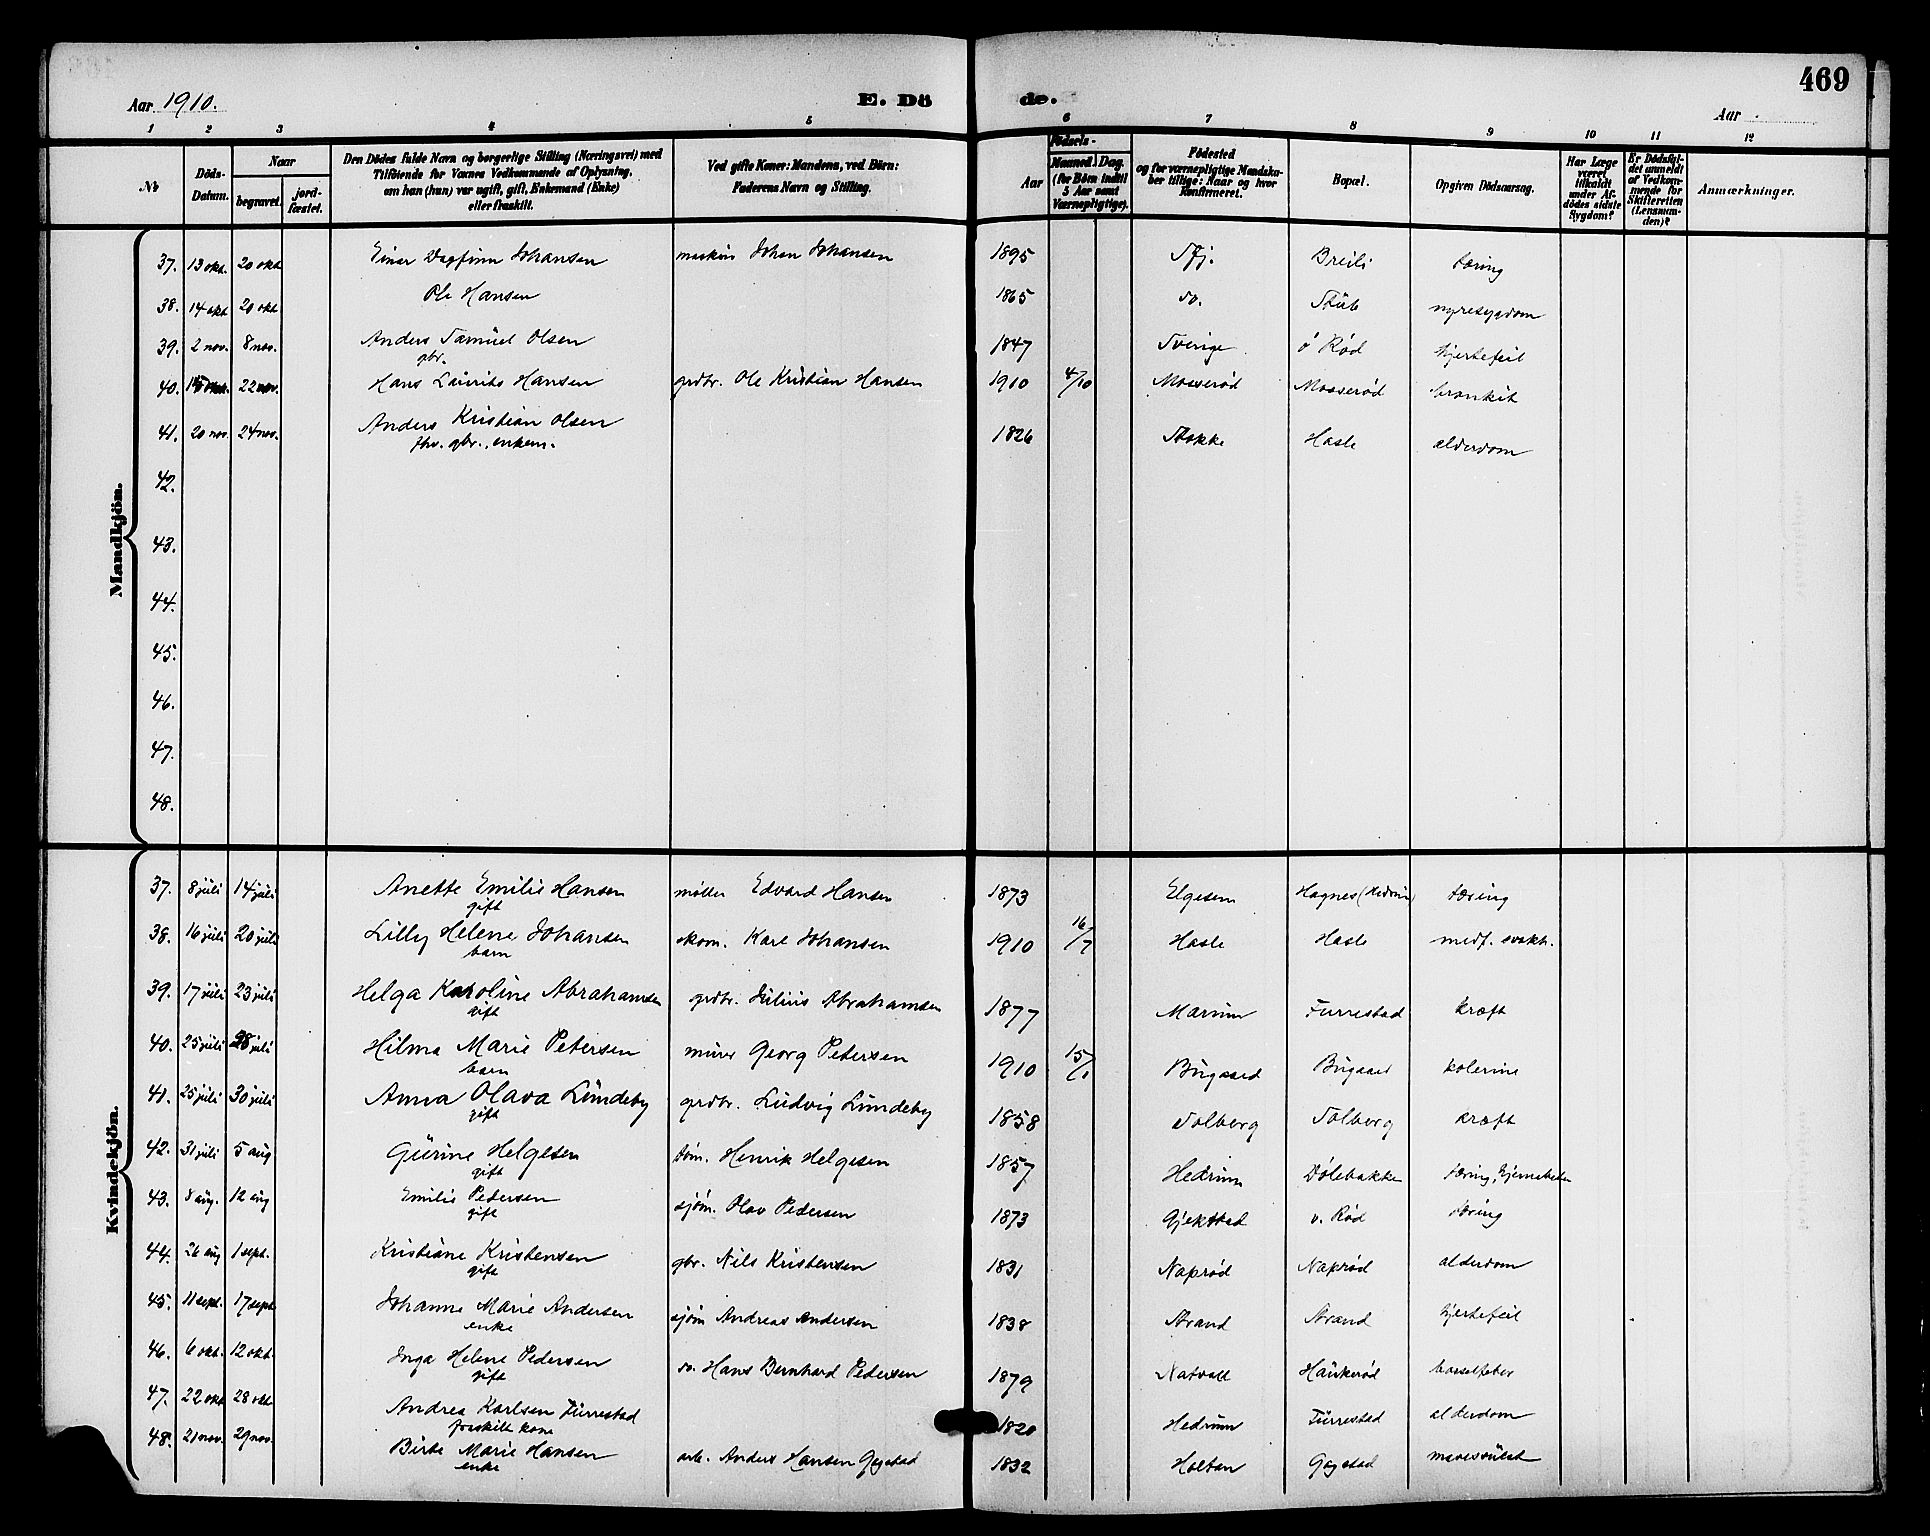 469
Aar 1910. E. Dö de. Aar
1 2 3 4 5 6 7 8 9 10 11 12
No Döds-Datum. Naar begravet. jordfæstet. Den Dödes fulde Navn og borgerlige Stilling (Næringsvei) med Tilföiende for Voxnes Vedkommende af Oplysning, om han (hun) var ugift, gift, Enkemand (Enke) eller fraskilt. Ved gifte Koner: Mandens, ved Börn: Faderens Navn og Stilling. Födsels- Aar Maaned. Dag. (for Börn indtil 5 Aar samt Værnepligtige). Födested og for værnepligtige Mandskaber tillige: Naar og hvor Konfirmeret. Bopæl. Opgiven Dödsaarsag. Har Læge været tilkaldt under Afdödes sidste Sygdom? Er Dödsfaldet anmeldt af Vedkommende for Skifteretten (Lensmanden)? Anmærkninger.
Mandkjön.
37. 13 okt. 20 okt Einar Dagfinn Johansen maskin Johan Johansen 1895 Sfj. Breili tæring
38. 14 okt 20 okt Ole Hansen 1865 do. Stub nyresygdom
39. 2 nov. 8 nov. Anders Samuel Olsen 1847 Sverige ö Röd hjertefeil
gbr.
40. 15 22 nov. Hans Lauritz Hansen grdbr. Ole Kristian Hansen 1910 4/10 Mosserød Mosserød bronkit
41. 20 nov. 24 nov. Anders Kristian Olsen 1826 Stokke Hasle alderdom
fhv. gbr., enkem.
42.
43.
44.
45.
46.
47.
48.
Kvindekjön.
37. 8 juli 14 juli Anette Emilie Hansen møller Edvard Hansen 1873 Elgesem Hagnes (Hedrum) tæring
gift
38. 16 juli 20 juli Lilly Helene Johansen skom. Karl Johansen 1910 16/7 Hasle Hasle medf. svakh.
barn
39. 17 juli 23 juli Helga Karoline Abrahamsen grdbr. Julius Abrahamsen 1877 Marum Furrestad kræft
gift
40. 25 juli 28 juli Hilma Marie Petersen murer Georg Petersen 1910 15/1 Bugaard Bugaard kolerine
barn
41. 25 juli 30 juli Anna Olava Lundeby grdbr. Ludvig Lundeby 1858 Solberg Solberg kræft
gift
42. 31 juli 5 aug Gurine Helgesen tøm. Henrik Helgesen 1857 Hedrum Dølebakken tæring,
gift
43. 8 aug. 12 aug Emilie Pedersen sjøm. Olav Pedersen 1873 Gjekstad v. Rød tæring
gift
44. 26 aug 1 sept. Kristiane Kristensen gbr. Nils Kristensen 1831 Naprød Naprød alderdom
gift
45. 11 sept. 17 sept Johanne Marie Andersen sjøm Andreas Andersen 1838 Strand Strand hjertefeil
enke
46. 6 okt. 12 okt. Inga Helene Pedersen do. Hans Bernhard Pedersen 1879 Natvall Haukerød barselfeber
gift
47. 22 okt 28 okt Andrea Karlsen Furrestad 1820 Hedrum Furrestad alderdom
fraskilt kone
48. 21 nov. 29 nov. Birte Marie Hansen arb. Anders Hansen Gogstad 1832 Holtan Gogstad mavesvulst
enke